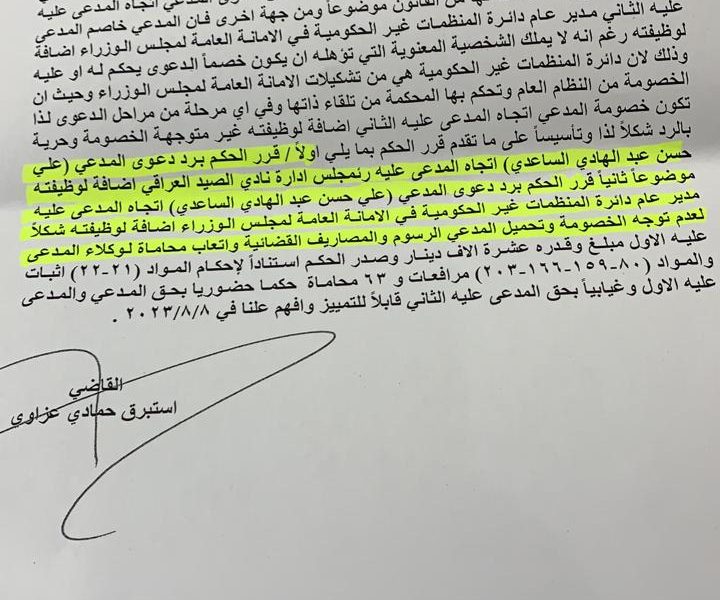 من القانون موضوعاً ومن جهة اخرى فان المدعي خاصم المدعى
عليه الثاني مدير عام دائرة المنظمات غير الحكومية في الامانة العامة لمجلس الوزراء اضافة
لوظيفته رغم انه لا يملك الشخصية المعنوية التي تؤهله ان يكون خصماً الدعوى يحكم له او عليه
وذلك لان دائرة المنظمات غير الحكومية هي من تشكيلات الامانة العامة لمجلس الوزراء وحيث ان
الخصومة من النظام العام وتحكم بها المحكمة من تلقاء ذاتها وفي اي مرحلة من مراحل الدعوى لذا
تكون خصومة المدعي اتجاه المدعى عليه الثاني اضافة لوظيفته غير متوجهة الخصومة وحرية
بالرد شكلاً لذا وتأسيساً على ما تقدم قرر الحكم بما يلي اولاً / قرر الحكم برد دعوى المدعي (علي
حسن عبد الهادي الساعدي) اتجاه المدعى عليه رئمجلس ادارة نادي الصيد العراقي اضافة لوظيفته
موضوعاً ثانياً قرر الحكم برد دعوى المدعي (علي حسن عبد الهادي الساعدي) اتجاه المدعى عليه
مدير عام دائرة المنظمات غير الحكومية في الامانة العامة لمجلس الوزراء اضافة لوظيفته شكلاً
لعدم توجه الخصومة وتحميل المدعي الرسوم والمصاريف القضائية واتعاب محاماة لوكلاء المدعى
عليه الاول مبلغ وقدره عشرة الاف دينار وصدر الحكم استناداً لإحكام المواد (٢١-٢٢) اثبات
والمواد (٨٠-١٥٩-١٦٦-٢٠٣) مرافعات و ٦٣ محاماة حكما حضوريا بحق المدعي والمدعى
عليه الاول وغيابياً بحق المدعى عليه الثاني قابلاً للتمييز وافهم علنا في ٢٠٢٣/٨/٨ .
القاضي
استبرق حمادي عزاوي